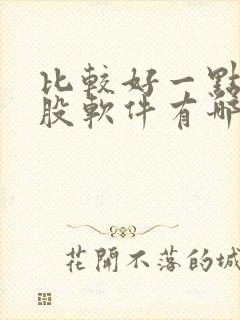 比較好一點
股軟件有哪
花開不落的城